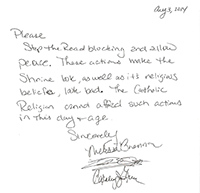 Aug 3, 2004
Please
Stop the Road blocking and allow
peace. These actions make the
Shrine look, as well as its religious
beliefs, look bad. The Catholic
Religion cannot afford such actions
in this day & age.
Sincerely